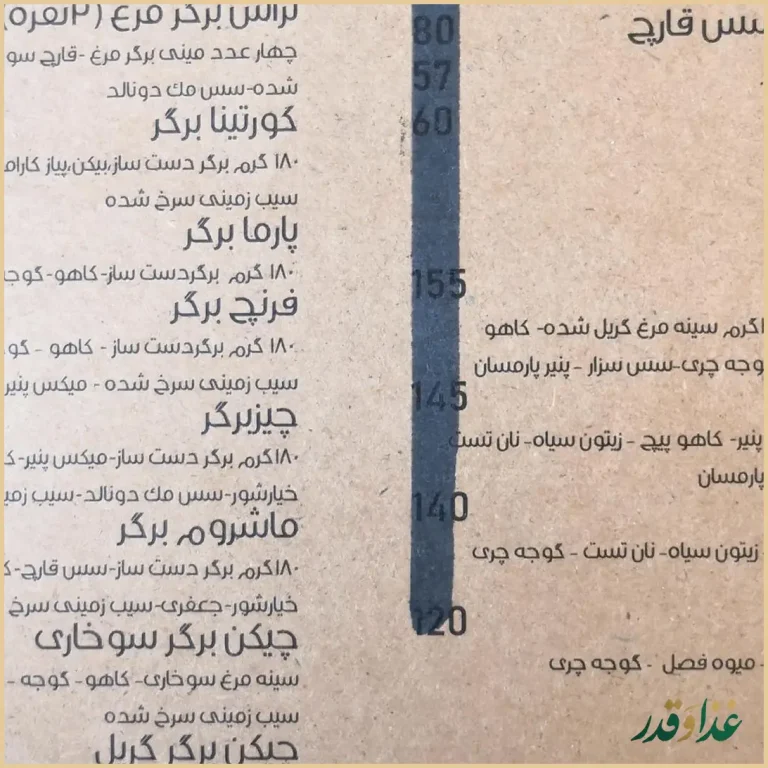 سس قارچ
80
57
60
155
اگرم سینه مرغ گریل شده- کاهو
وجه چری-سس سزار - پنیر پارمسان
145
پنیر- کاهو پیچ - زیتون سیاه- نان تست
پارمسان
140
زیتون سیاه- نان تست - گوجه چری
120
- میوه فصل - گوجه چری
تراس برگر مرغ (۲نفره)
چهار عدد مینی برگر مرغ -قارچ سو
شده-سس مک دونالد
کورتینا برگر
۱۸۰ گرم برگر دست ساز،بیکن،پیاز کارام
سیب زمینی سرخ شده
پارما برگر
۱۸۰ گرم برگردست ساز- کاهو- گوج
فرنچ برگر
۱۸۰ گرم برگردست ساز - کاهو - گو
سیب زمینی سرخ شده - میکس پنیر
چیزبرگر
۱۸۰گرم برگر دست ساز-میکس پنیر-ک
خیارشور-سس مک دونالد-سیب زمی
ماشروم برگر
۱۸۰گرم برگر دست ساز-سس قارچ-ک
خیارشور-جعفری-سیب زمینی سرخ
چیکن برگر سوخاری
سینه مرغ سوخاری- کاهو- گوجه -
سیب زمینی سرخ شده
چیکن برگر گریل
غذا و قدر